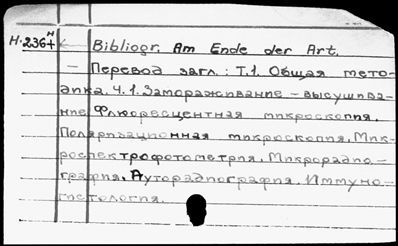 H-236+ H Bibliogr. Am Ende der Art.
— Перевод загл.: Т.1. Общая мето-
дика. Ч.1. Замораживание - высушива-
ние. Флюоресцентная микроскопия.
Поляризационная микроскопия. Мик-
роспектрофотометрия. Микрорадио-
графия. Ауторадиография. Иммуно-
гистология.